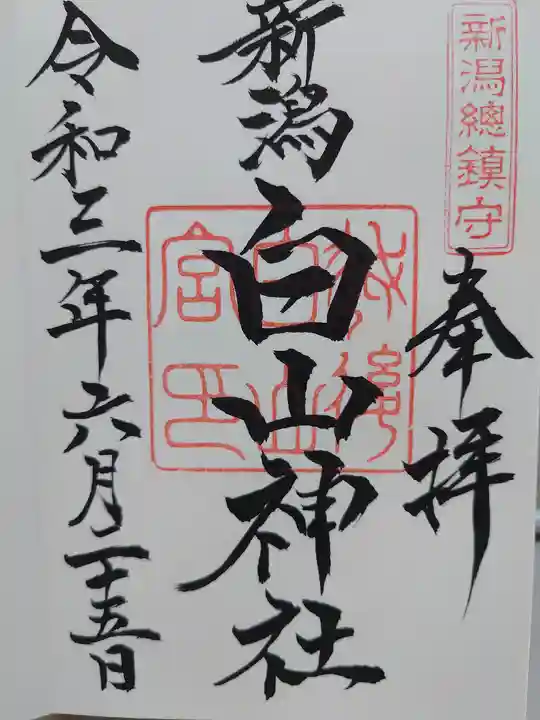 新潟總鎮守
奉拝
越後
白山
宮印
新潟白山神社
令和三年六月二十五日